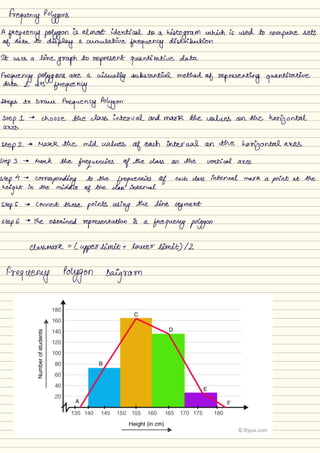 Frequency Polygons
A frequency polygon is almost identical to a histogram which is used to compare sets
of data to display a cumulative frequency distribution
It uses a line graph to represent quantitative data
Frequency polygons are a visually substantial method of representing quantitative
data & its frequency
Steps to Draw Frequency Polygon
Step 1 → choose the class interval and mark the values on the horizontal
axes
Step 2 → Mark the mid values of each interval on the horizontal axes
Step 3 → Mark the frequencies of the class on the vertical axes
Step 4 → corresponding to the frequencies of each class interval mark a point at the
height in the middle of the class interval
Step 5 → Connect these points using the line segment
Step 6 → The obtained representation is a frequency polygon
classmark = (upper limit + lower limit)/2
Frequency Polygon Daigram
Number of students
180
160
140
120
100
80
60
40
20
A
B
C
D
E
F
135 140 145 150 155 160 165 170 175 180
Height (in cm)
© Byjus.com